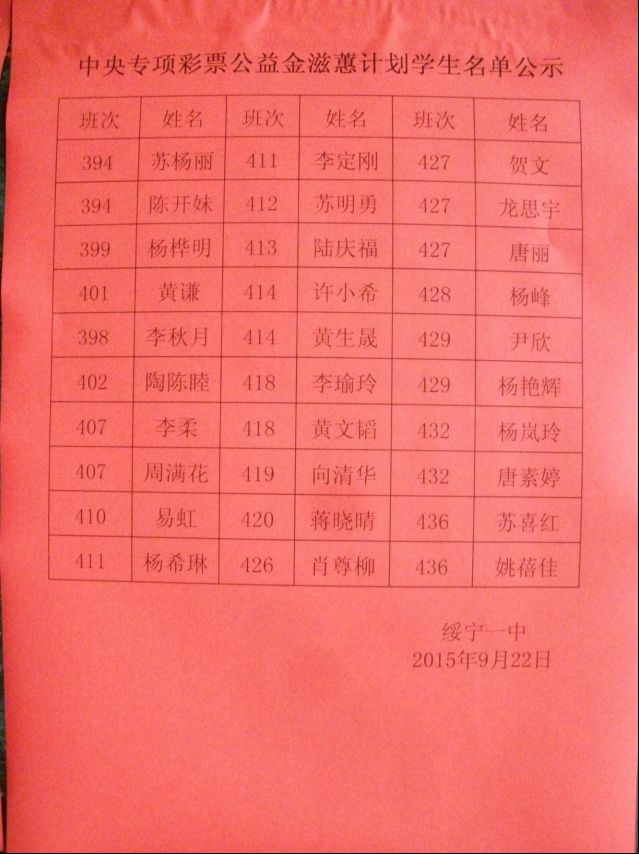 中央专项彩票公益金滋蕙计划学生名单公示
班次 姓名 班次 姓名 班次 姓名
394 苏杨丽 411 李定刚 427 贺文
394 陈开妹 412 苏明勇 427 龙思宇
399 杨桦明 413 陆庆福 427 唐丽
401 黄谦 414 许小希 428 杨峰
398 李秋月 414 黄生晟 429 尹欣
402 陶陈睦 418 李瑜玲 429 杨艳辉
407 李柔 418 黄文韬 432 杨岚玲
407 周满花 419 向清华 432 唐素婷
410 易虹 420 蒋晓晴 436 苏喜红
411 杨希琳 426 肖尊柳 436 姚蓓佳
绥宁一中
2015年9月22日